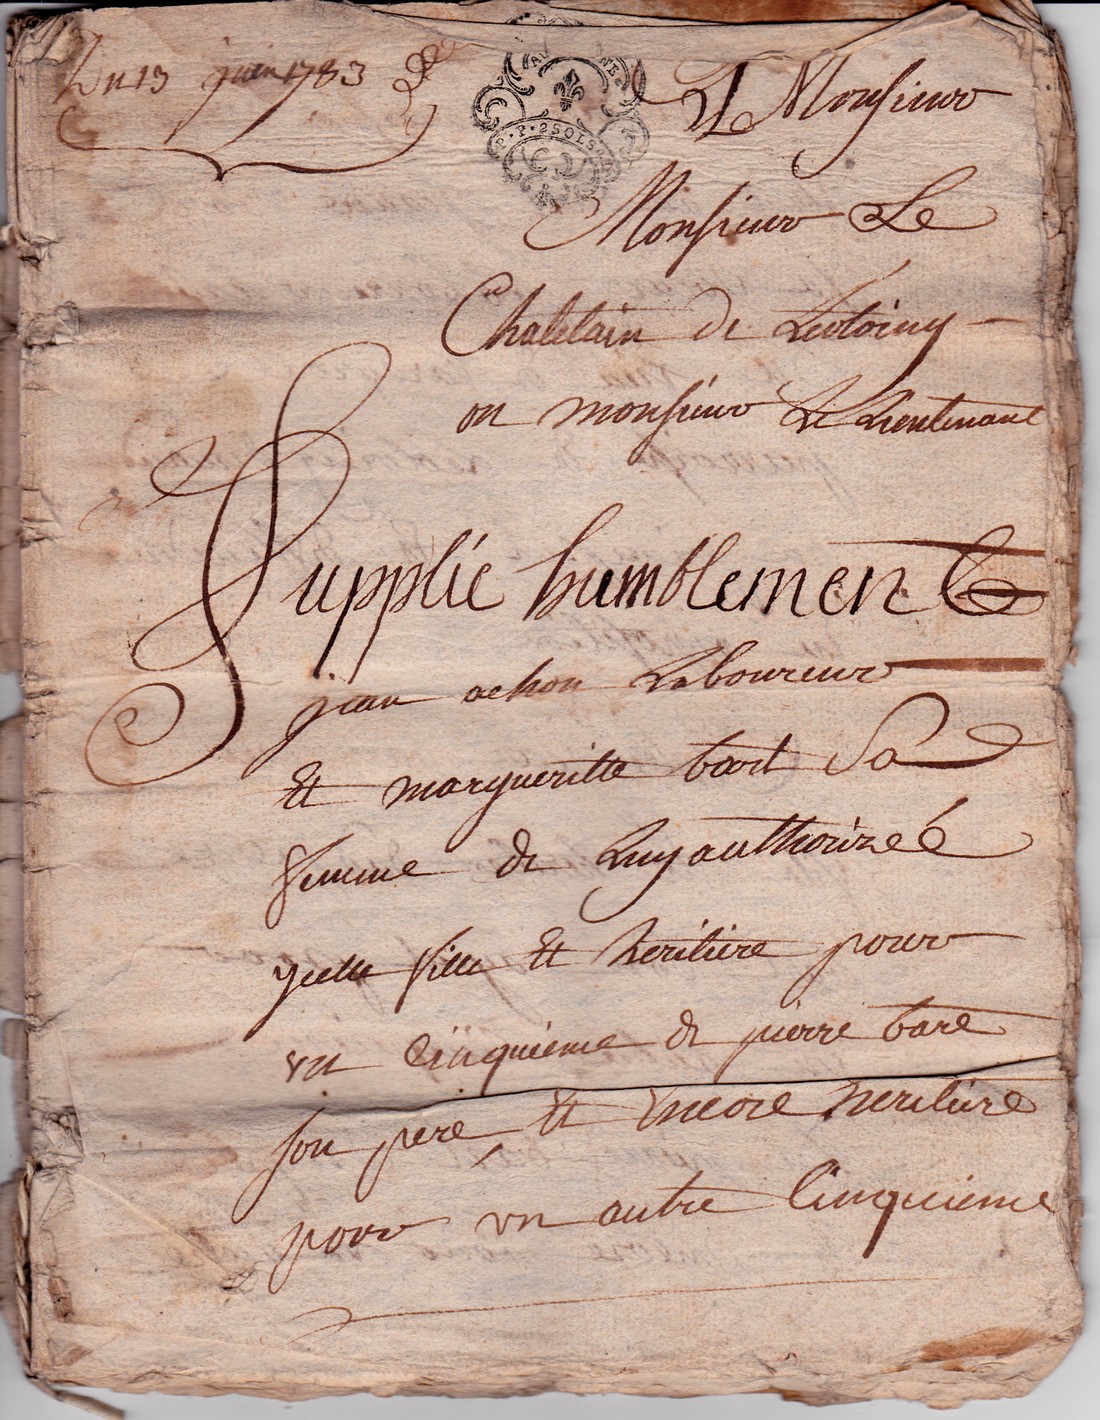 Du 13 juin 1783
AU NE
P. 2 SOLS
A Monsieur
Monsieur Le
Chatelain de
ou monsieur Le Lieutenant
Supplie humblement
jean achon Laboureur
Et margueritte bart Sa
femme de Luy authorizeé
ycelle fille Et heritiere pour
vn cinquieme de pierre bare
son pere Et Encore heritiere
pour vn autre Cinquieme